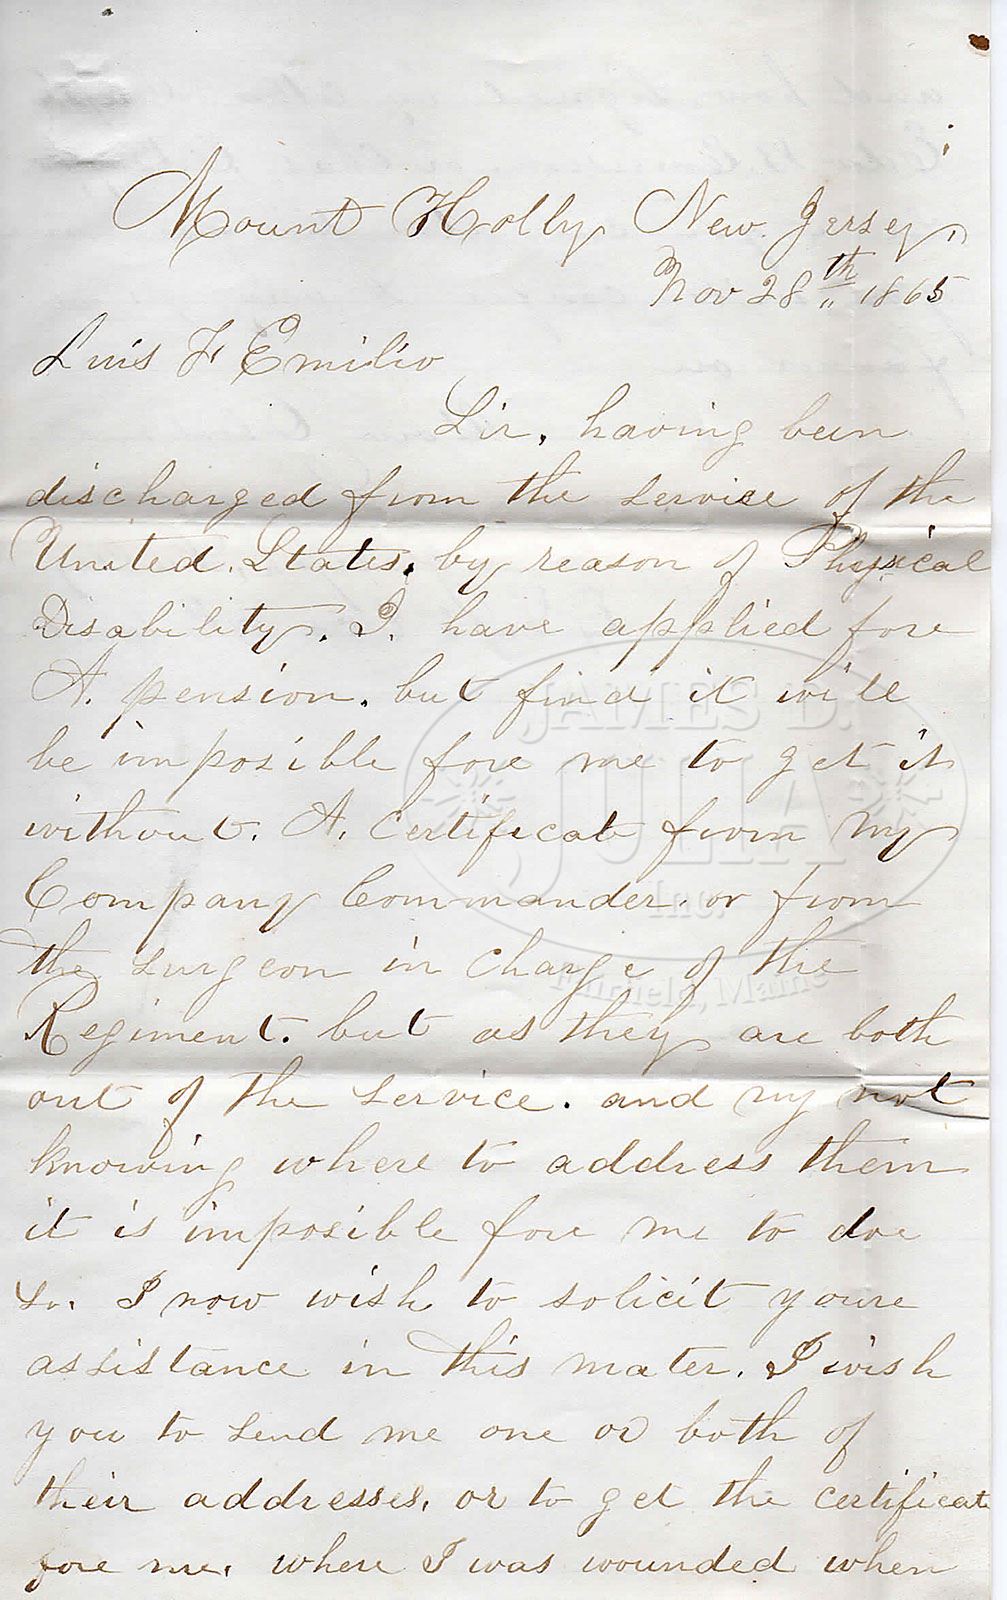 Mount Holly New. Jersey,
Nov 28th 1865
Luis F. Emilio
Sir, having been
discharged from the service of the
United. States. by reason of Physical
Disability. I. have applied fore
A. pension. but find it will
be imposible fore me to get it
without. A. Certificat from my
Company Commander. or from
the surgeon in charge of the
Regiment. but as they are both
out of the service. and my not
knowing where to address them
it is imposible fore me to doe
so. I now wish to solicit youre
assistance in this mater. I wish
you to send me one or both of
their addresses, or to get the certificate
fore me. where I was wounded when
JAMES D.
JULIA
Inc.
Fairfield, Maine